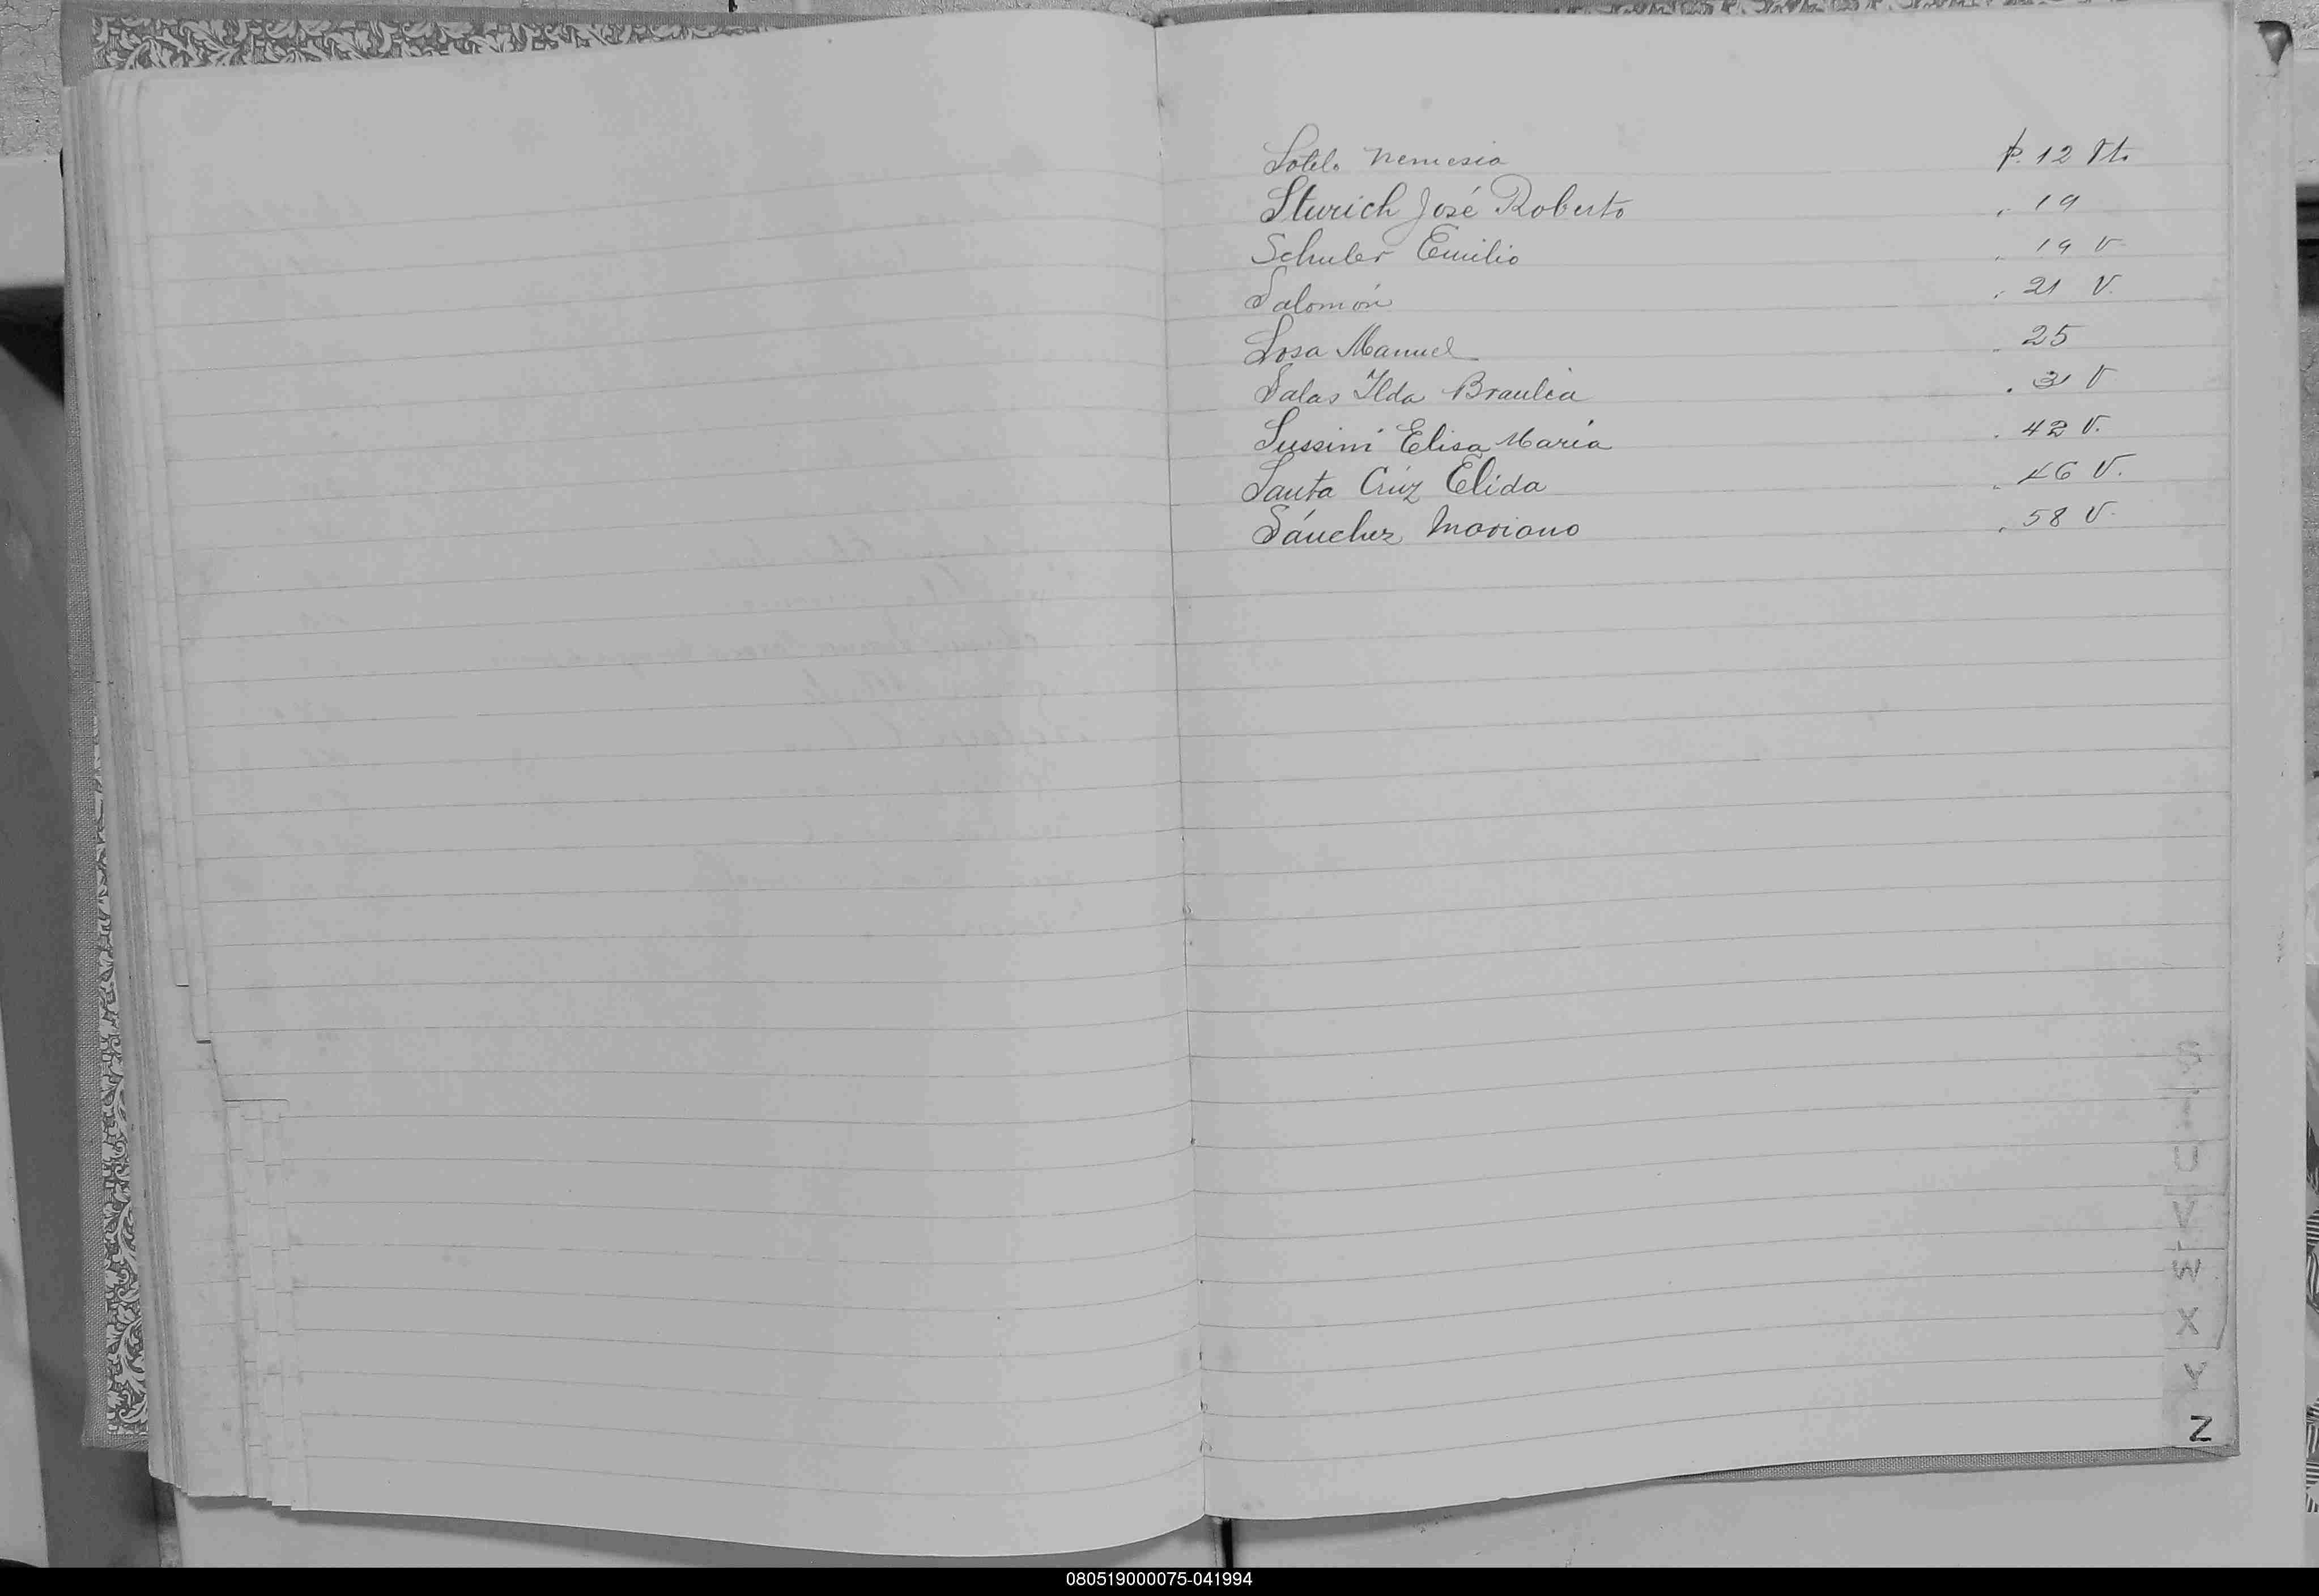 Sotelo Nemesia p. 12 Vta
Sturich José Roberto " 19
Schuler Emilio " 19 V
Salomón " 21 V.
Sosa Manuel " 25
Salas Ilda Braulia " 31 V
Sussini Elisa María " 42 V.
Santa Crúz Elida " 46 V.
Sánchez Mariano " 58 V.
S
T
U
V
W
X
Y
Z
080519000075-041994